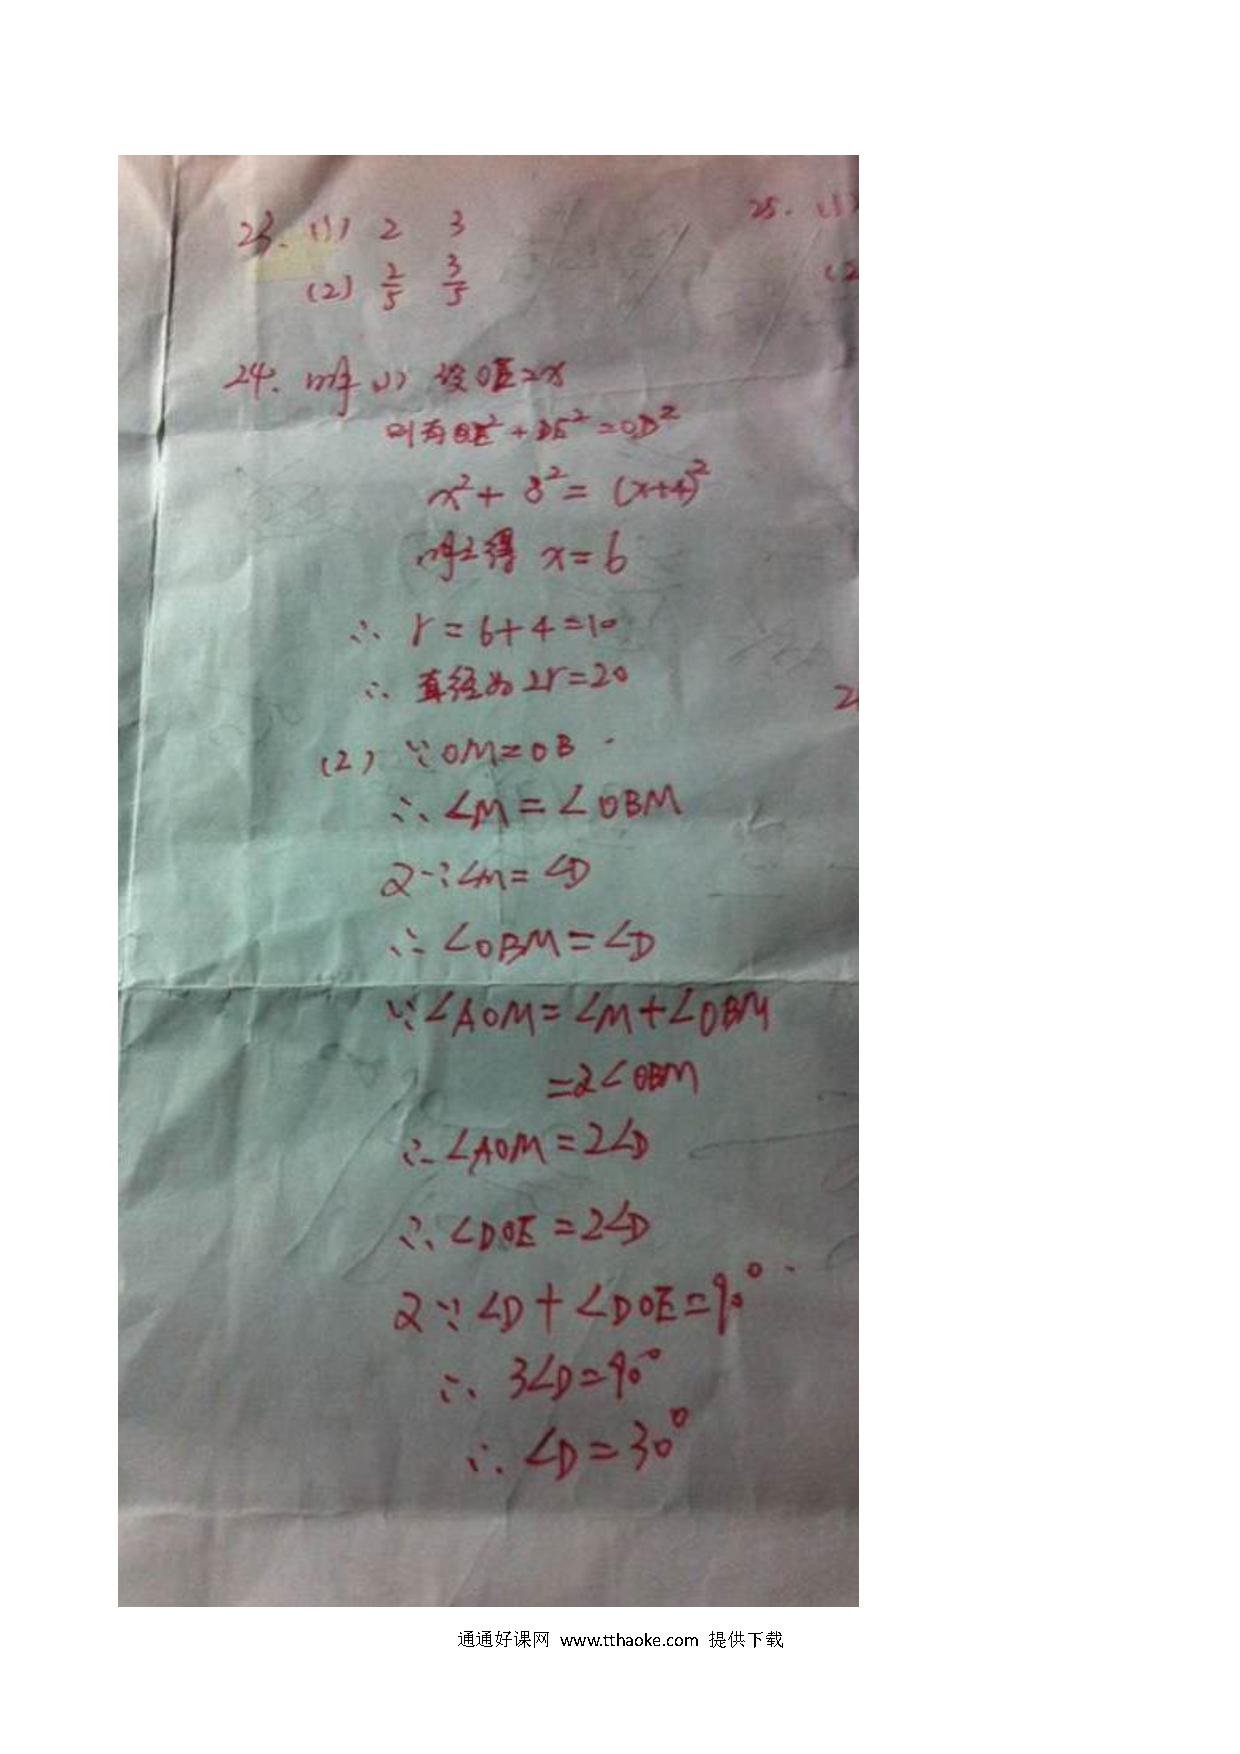 23. (1) 2 3
(2) 2/5 3/5
24. 解 (1) 设OE=x
则有OE²+DE²=OD²
x²+8²=(x+4)²
解之得 x=6
∴ r=6+4=10
∴ 直径为2r=20
(2) ∵OM=OB
∴ ∠M=∠OBM
又∵∠M=∠D
∴ ∠OBM=∠D
∵∠AOM=∠M+∠OBM
=2∠OBM
∴ ∠AOM=2∠D
∴ ∠DOE=2∠D
又∵ ∠D+∠DOE=90°
∴ 3∠D=90°
∴ ∠D=30°
25. (1)
(2
2
通通好课网 www.tthaoke.com 提供下载